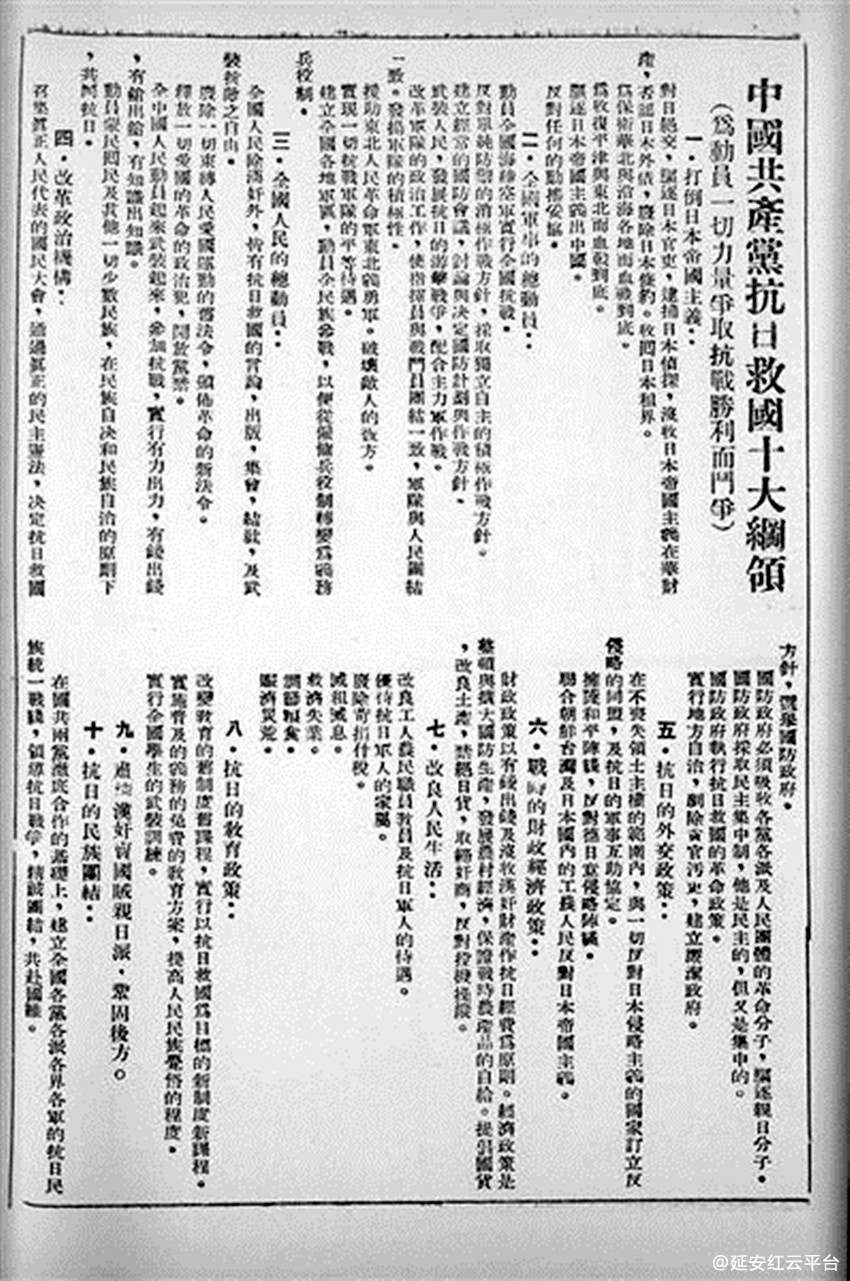 中國共產黨抗日救國十大綱領
（爲動員一切力量爭取抗戰勝利而鬥爭）
一・打倒日本帝國主義：
對日絕交，驅逐日本官吏，逮捕日本偵探，沒收日本帝國主義在華財
產，否認日本外債，廢除日本條約。收回日本租界。
爲保衛華北與沿海各地而血戰到底。
爲收復平津與東北而血戰到底。
驅逐日本帝國主義出中國。
反對任何的動搖妥協。
二・全國軍事的總動員：
動員全國海陸空軍實行全國抗戰。
反對單純防禦的消極作戰方針，採取獨立自主的積極作戰方針。
建立經常的國防會議，討論與決定國防計劃與作戰方針。
武裝人民，發展抗日的游擊戰爭，配合主力軍作戰。
改革軍隊的政治工作，使指揮員與戰鬥員團結一致，軍隊與人民團結
一致。發揚軍隊的積極性。
援助東北人民革命軍東北義勇軍。破壞敵人的後方。
實現一切抗戰軍隊的平等待遇。
建立全國各地軍區，動員全民族參戰，以便從僱傭兵役制轉變爲義務
兵役制。
三・全國人民的總動員：
全國人民除漢奸外，皆有抗日救國的言論，出版，集會，結社，及武
裝抗敵之自由。
廢除一切束縛人民愛國運動的舊法令，頒佈革命的新法令。
釋放一切愛國的革命的政治犯，開放黨禁。
全中國人民動員起來武裝起來，參加抗戰，實行有力出力，有錢出錢
，有槍出槍，有知識出知識。
動員蒙民回民及其他一切少數民族，在民族自決和民族自治的原則下
，共同抗日。
四・改革政治機構：
召集眞正人民代表的國民大會，通過眞正的民主憲法，決定抗日救國
方針，選舉國防政府。
國防政府必須吸收各黨各派及人民團體的革命分子，驅逐親日分子。
國防政府採取民主集中制，他是民主的，但又是集中的。
國防政府執行抗日救國的革命政策。
實行地方自治，剷除貪官污吏，建立廉潔政府。
五・抗日的外交政策：
在不喪失領土主權的範圍內，與一切反對日本侵略主義的國家訂立反
侵略的同盟，及抗日的軍事互助協定。
擁護和平陣綫，反對德日意侵略陣綫。
聯合朝鮮台灣及日本國內的工農人民反對日本帝國主義。
六・戰時的財政經濟政策：
財政政策以有錢出錢及沒收漢奸財產作抗日經費爲原則。經濟政策是
整頓與擴大國防生產，發展農村經濟，保證戰時農產品的自給。提倡國貨
，改良土產，禁絕日貨，取締奸商，反對投機操縱。
七・改良人民生活：
改良工人農民職員教員及抗日軍人的待遇。
優待抗日軍人的家屬。
廢除苛捐什稅。
減租減息。
救濟失業。
調節糧食。
賑濟災荒。
八・抗日的教育政策：
改變教育的舊制度舊課程，實行以抗日救國爲目標的新制度新課程。
實施普及的義務的免費的教育方案，提高人民民族覺悟的程度。
實行全國學生的武裝訓練。
九・肅清漢奸賣國賊親日派・鞏固後方。
十・抗日的民族團結：
在國共兩黨澈底合作的基礎上，建立全國各黨各派各界各軍的抗日民
族統一戰綫，領導抗日戰爭，精誠團結，共赴國難。
@延安红云平台